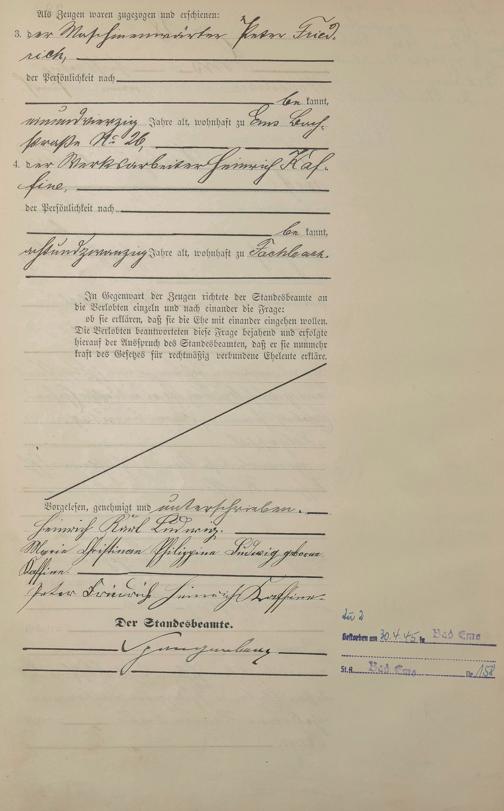 Als Zeugen waren zugezogen und erschienen:
3. der Maschinenwärter Peter Fried-
rich,
der Persönlichkeit nach
be kannt,
einundvierzig Jahre alt, wohnhaft zu Ems Bach-
straße No 26,
4. der Werksarbeiter Heinrich Kaf-
fine,
der Persönlichkeit nach
be kannt,
achtundzwanzig Jahre alt, wohnhaft zu Fachbach.
In Gegenwart der Zeugen richtete der Standesbeamte an
die Verlobten einzeln und nach einander die Frage:
ob sie erklären, daß sie die Ehe mit einander eingehen wollen.
Die Verlobten beantworteten diese Frage bejahend und erfolgte
hierauf der Ausspruch des Standesbeamten, daß er sie nunmehr
kraft des Gesetzes für rechtmäßig verbundene Eheleute erkläre.
Vorgelesen, genehmigt und unterschrieben.
Heinrich Karl Ludwig.
Marie Christiane Philippine Ludwig geborene
Kaffine.
Peter Friedrich Heinrich Kaffine.
Der Standesbeamte.
Spangenberg
zu 2
Gestorben am 30.4.45 in Bad Ems
St.A. Bad Ems Nr. 158